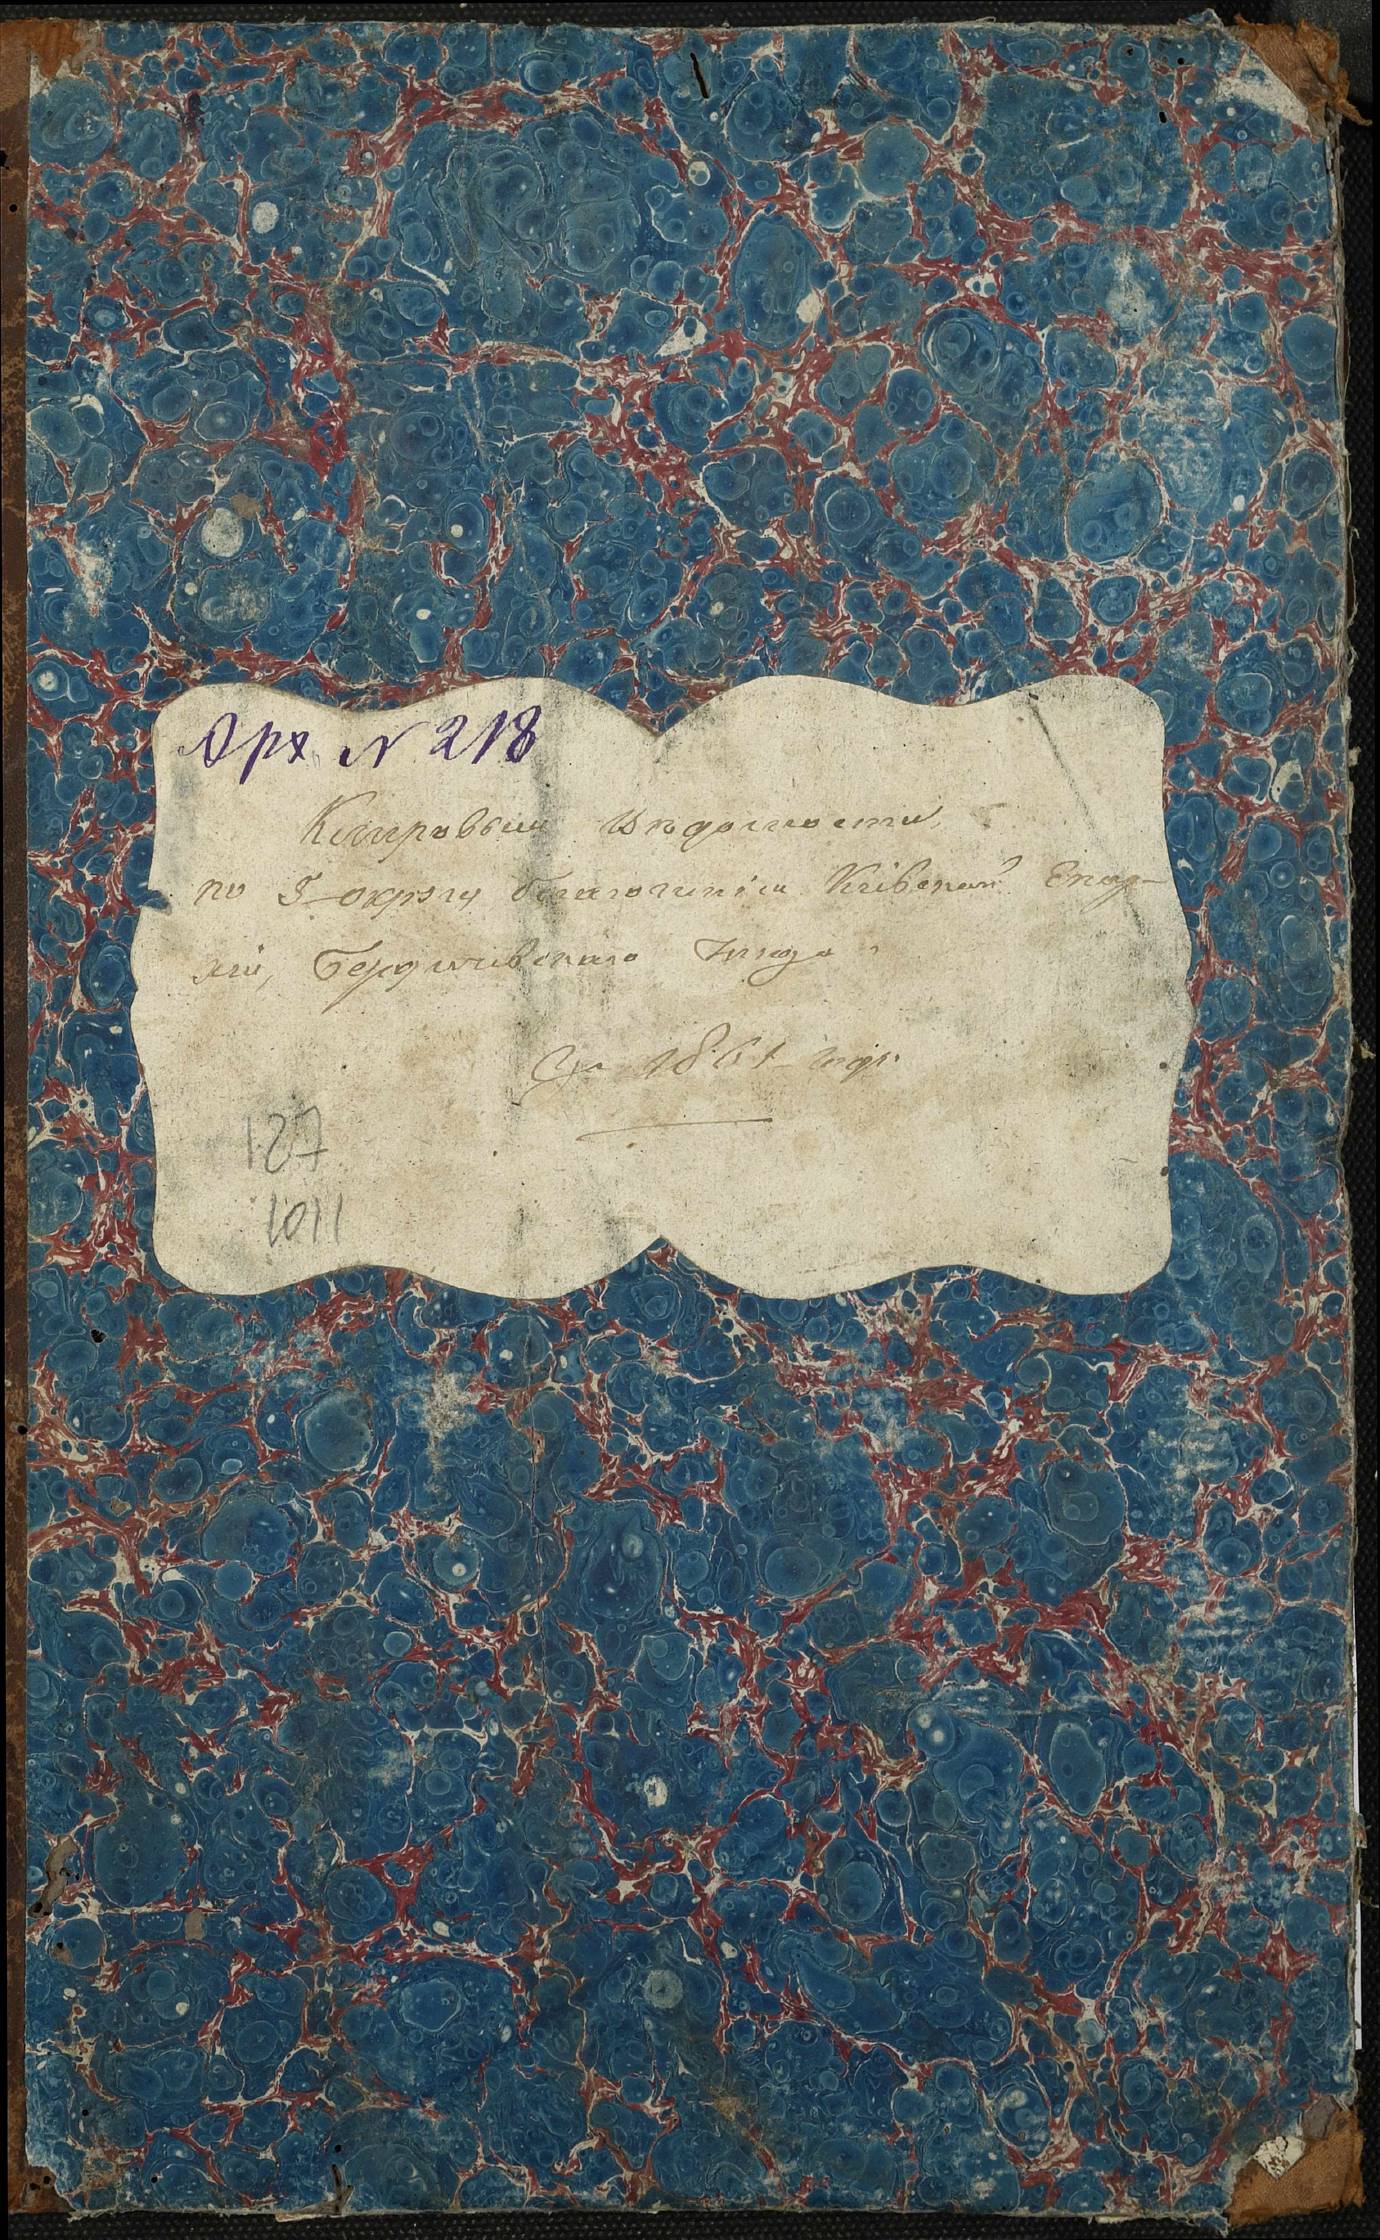 Арх. № 218
Клировыя Вѣдомости,
по 3-округу благочинія Кіевской Епар-
хіи, Бердичевскаго Уѣзда
За 1861 годъ
187
1011